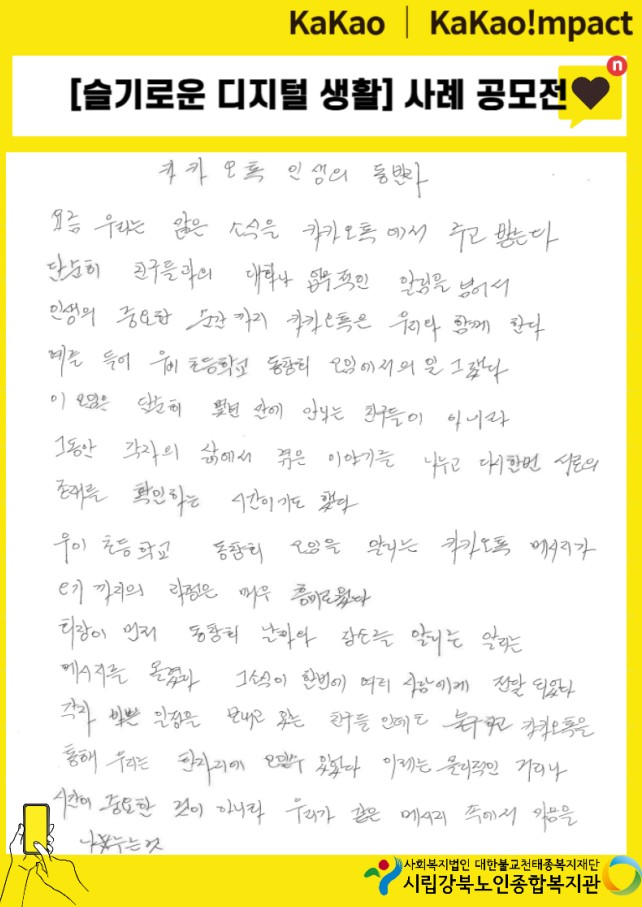 KaKao | KaKao!mpact
n
[슬기로운 디지털 생활] 사례 공모전
카카오톡 인생의 동반자
요즘 우리는 많은 소식을 카카오톡에서 주고 받는다
단순히 친구들과의 대화나 업무적인 알림을 넘어서
인생의 중요한 순간까지 카카오톡은 우리와 함께 한다
예를 들어 우이 초등학교 동창회 모임에서의 일 그랬다
이 모임은 단순히 몇년 만에 만나는 친구들이 아니라
그동안 각자의 삶에서 겪은 이야기를 나누고 다시한번 서로의
존재를 확인하는 시간이기도 했다
우이 초등학교 동창회 모임을 알리는 카카오톡 메시지가
오기 까지의 과정은 매우 흥미로웠다
회장이 먼저 동창회 날짜와 장소를 알리는
메시지를 올렸다 그소식이 한번에 여러 사람에게 전달 되었다
각자 바쁜 일정을 보내고 있는 친구들 인데도 카카오톡을
통해 우리는 한자리에 모일수 있었다 이제는 물리적인 거리나
시간이 중요한 것이 아니라 우리가 같은 메시지 속에서 마음을
나누는것
사회복지법인 대한불교천태종복지재단
시립강북노인종합복지관